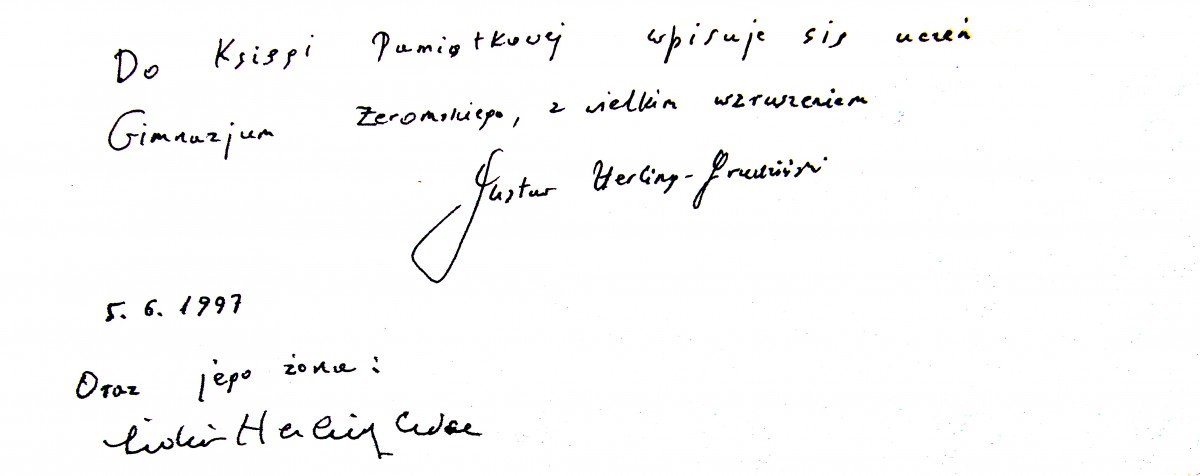 Do Księgi Pamiątkowej wpisuje się uczeń
Gimnazjum Żeromskiego, z wielkim wzruszeniem
Gustaw Herling-Grudziński
5. 6. 1997
Oraz jego żona:
Herling